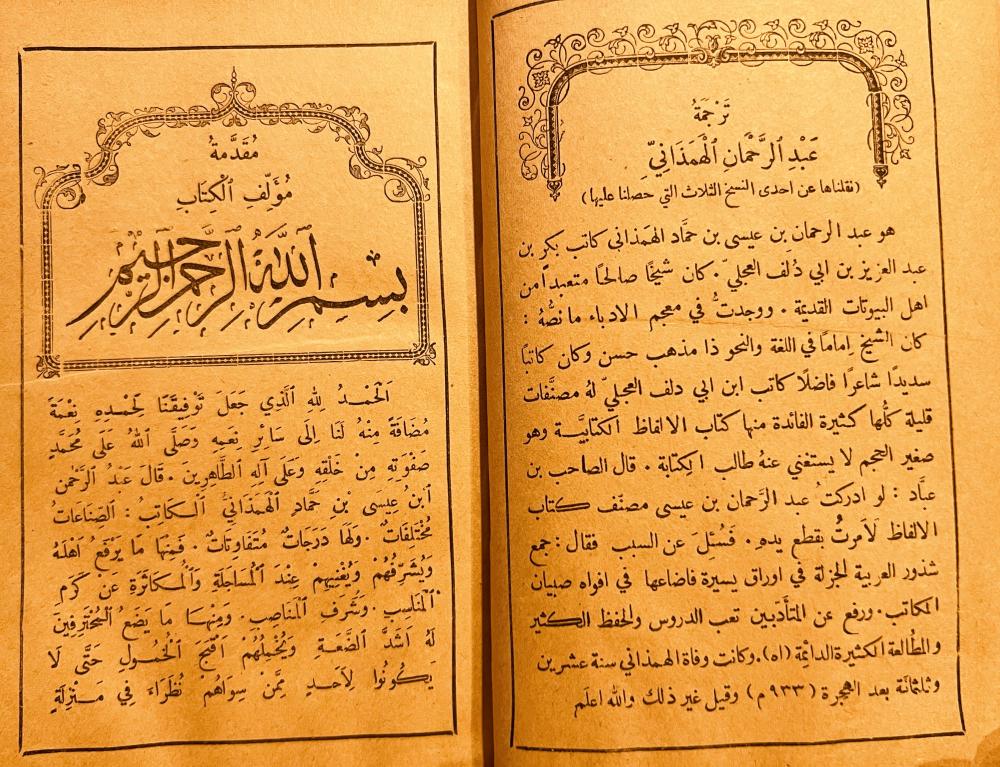 تَرْجَمَةُ
عَبْدِ ٱلرَّحْمَانِ ٱلْهَمَذَانِيِّ
(نقلناها عن احدى النسخ الثلاث التي حصلنا عليها)
هو عبد الرحمان بن عيسى بن حمَّاد الهمذاني كاتب بكر بن
عبد العزيز بن ابي دُلف العجليّ. كان شيخًا صالحًا متعبدًا من
اهل البيوتات القديمة. ووجدتُ في معجم الادباء ما نصُّهُ :
كان الشيخ إمامًا في اللغة والنحو ذا مذهب حسن وكان كاتبًا
سديدًا شاعرًا فاضلًا كاتب ابن ابي دلف العجليّ لهُ مصنَّفات
قليلة كلُّها كثيرة الفائدة منها كتاب الالفاظ الكتابيَّة وهو
صغير الحجم لا يستغني عنهُ طالب الكتابة. قال الصاحب بن
عبَّاد : لو ادركتُ عبد الرَّحمان بن عيسى مصنّف كتاب
الالفاظ لَأمرتُ بقطع يدهِ. فسُئل عن السبب فقال : جمع
شذور العربية الجزلة في اوراق يسيرة فاضاعها في افواه صبيان
المكاتب. ورفع عن المتأدّبين تعب الدروس والحفظ الكثير
والمطالعة الكثيرة الدائمة (اه). وكانت وفاة الهمذاني سنة عشرين
وثلثمائة بعد الهجرة (٩٣٣ م) وقيل غير ذلك والله اعلم
مُقَدَّمةُ
مُؤَلِّفِ ٱلْكِتَابِ
بِسْمِ ٱللَّهِ ٱلرَّحْمٰنِ ٱلرَّحِيمِ
اَلْحَمْدُ لِلّٰهِ ٱلَّذِي جَعَلَ تَوْفِيقَنَا لِحَمْدِهِ نِعْمَةً
مُضَافَةً مِنْهُ لَنَا إِلَى سَائِرِ نِعَمِهِ وَصَلَّى ٱللهُ عَلَى مُحَمَّدٍ
صَفْوَتِهِ مِنْ خَلْقِهِ وَعَلَى آلِهِ ٱلطَّاهِرِينَ. قَالَ عَبْدُ ٱلرَّحْمٰنِ
ٱبْنُ عِيسَى بْنِ حَمَّادٍ ٱلْهَمَذَانِيُّ ٱلْكَاتِبُ : ٱلصِّنَاعَاتُ
مُخْتَلِفَاتٌ. وَلَهَا دَرَجَاتٌ مُتَفَاوِتَاتٌ. فَمِنْهَا مَا يَرْفَعُ أَهْلَهُ
وَيُشَرِّفُهُمْ وَيُغْنِيهِمْ عِنْدَ ٱلْمُسَاجَلَةِ وَٱلْمُكَاثَرَةِ عَنْ كَرَمِ
ٱلْمَنَاسِبِ. وَشَرَفِ ٱلْمَنَاصِبِ. وَمِنْهَا مَا يَضَعُ ٱلْمُحْتَرِفِينَ
لَهُ أَشَدَّ ٱلضَّعَةِ وَيُخْمِلُهُمْ أَقْبَحَ ٱلْخُمُولِ حَتَّى لَا
يَكُونُوا لِأَحَدٍ مِمَّنْ سِوَاهُمْ نُظَرَاءَ فِي مَنْزِلَةٍ